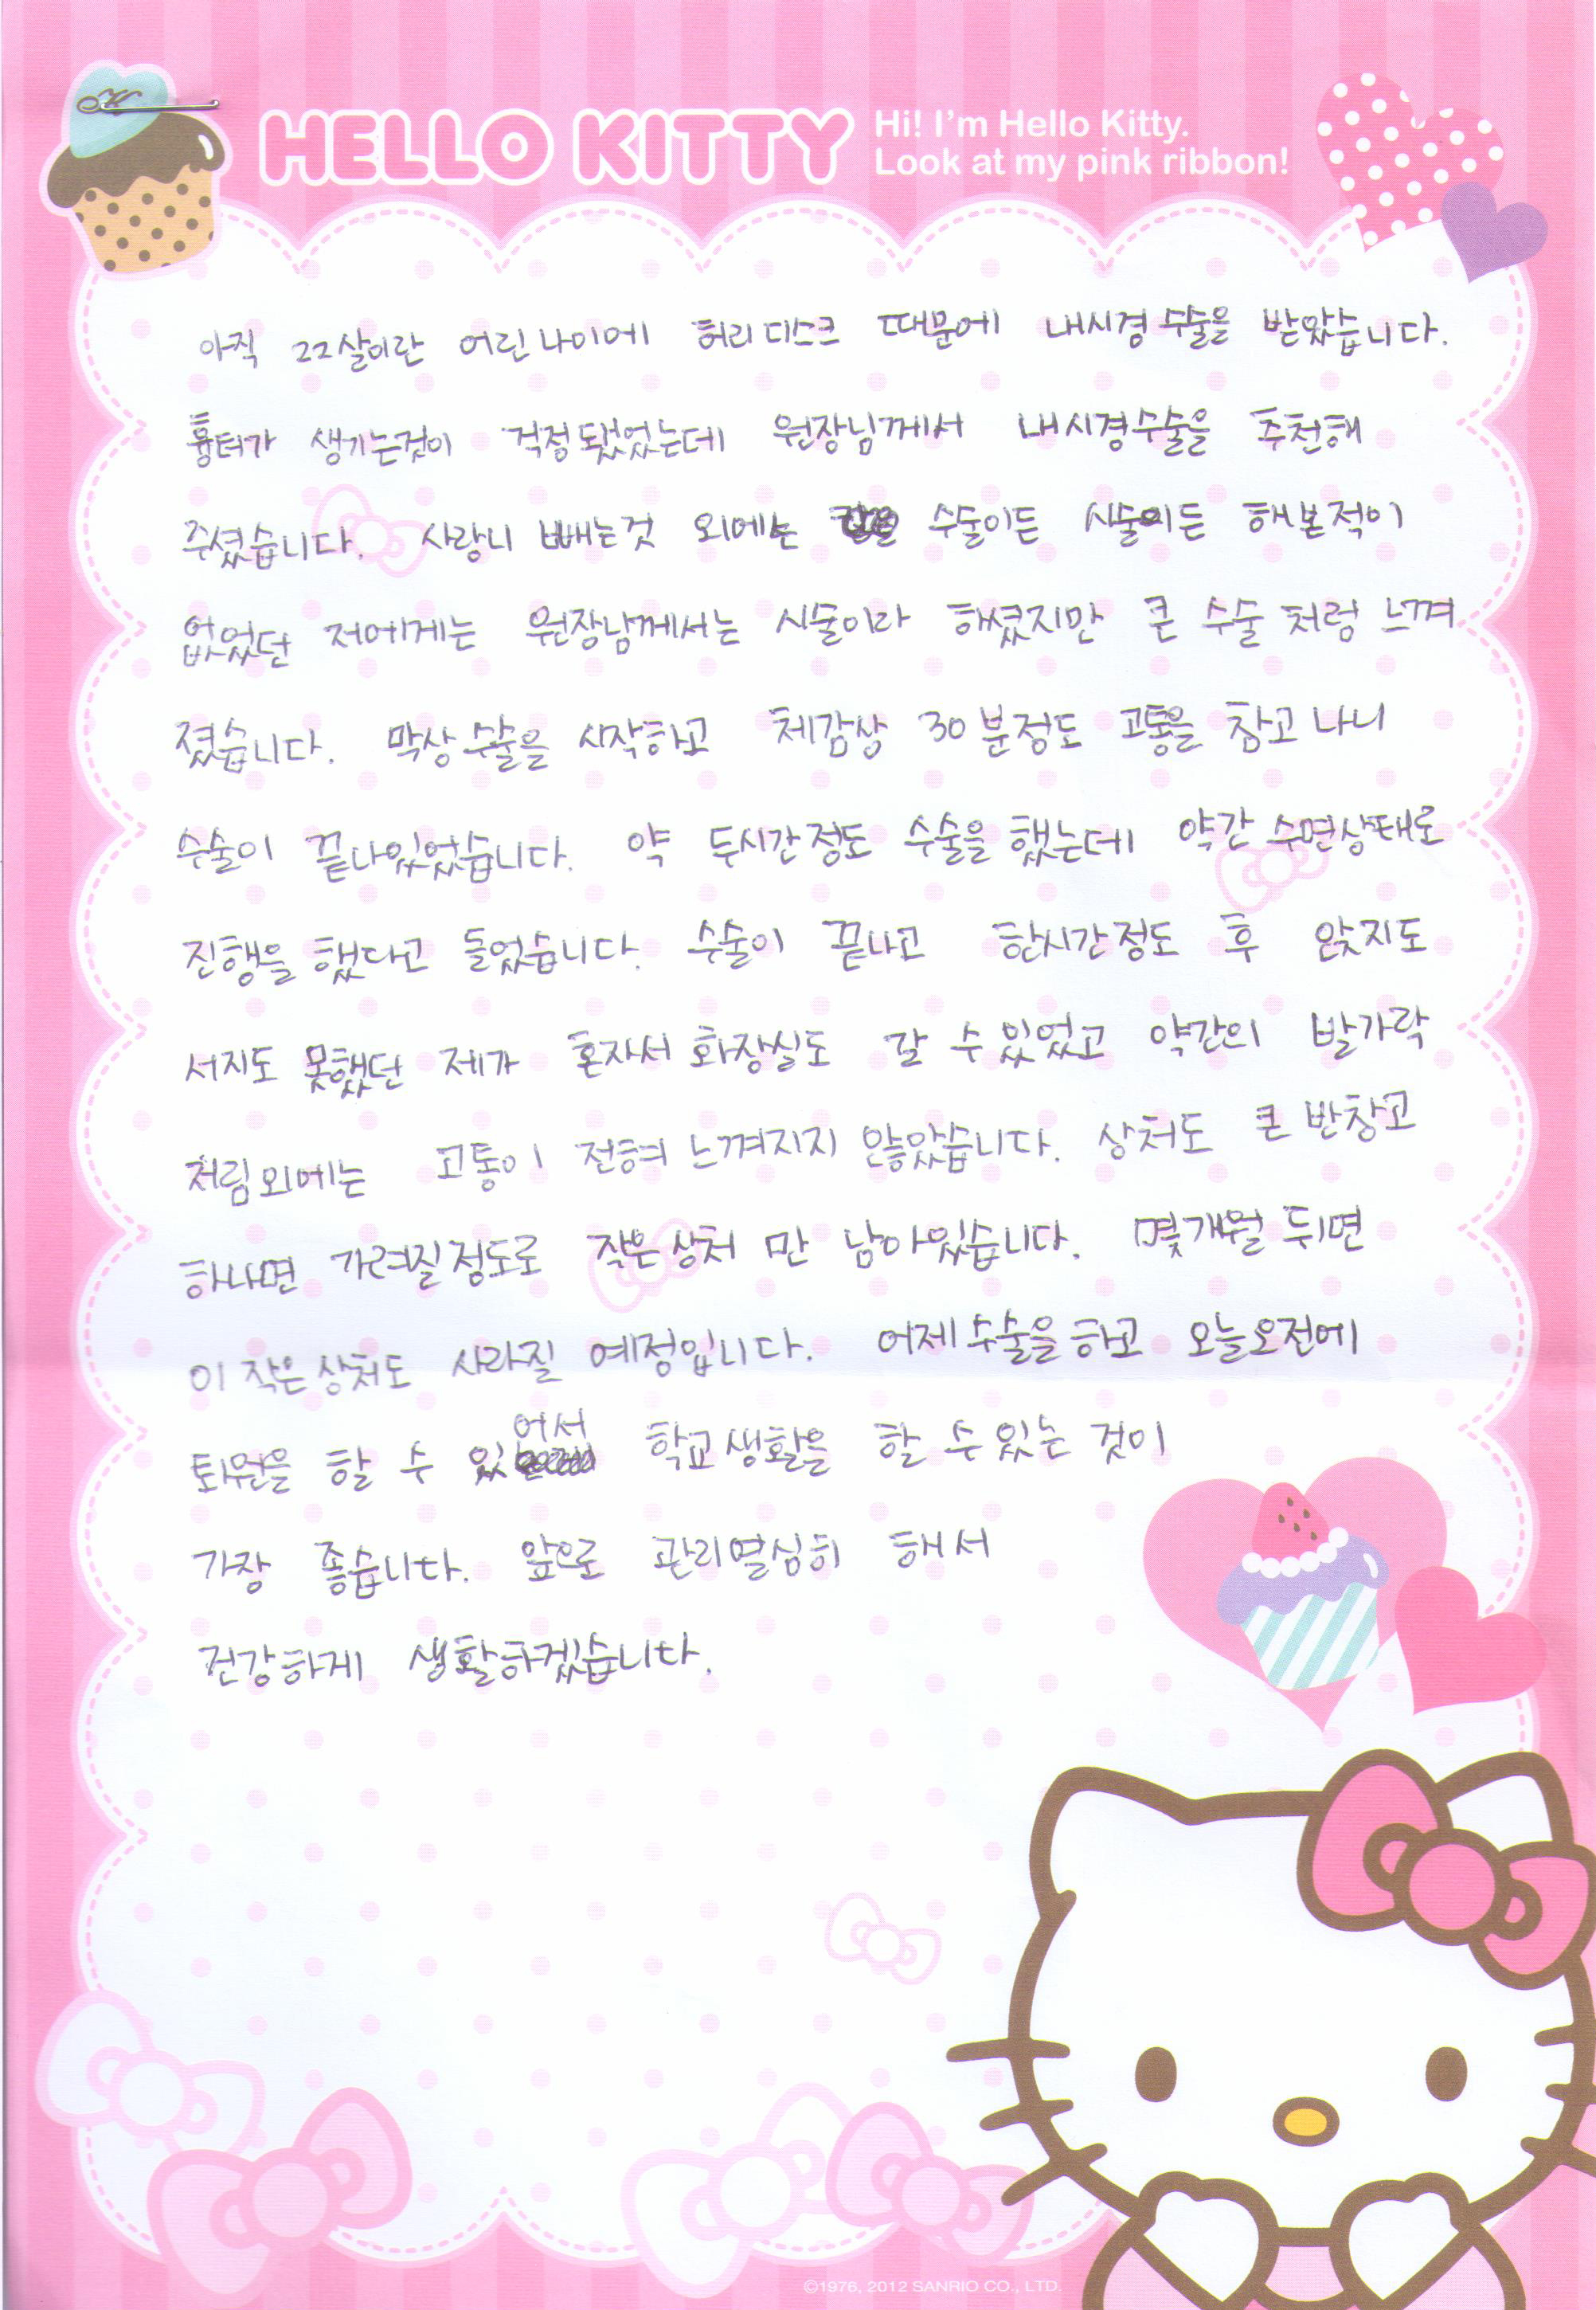 HELLO KITTY
Hi! I'm Hello Kitty.
Look at my pink ribbon!
아직 22살이란 어린나이에 허리디스크 때문에 내시경수술을 받았습니다.
흉터가 생기는것이 걱정됐었는데 원장님께서 내시경수술을 추천해
주셨습니다. 사랑니 빼는것 외에는 수술이든 시술이든 해본적이
없었던 저에게는 원장님께서는 시술이라 하셨지만 큰 수술 처럼 느껴
졌습니다. 막상 수술을 시작하고 체감상 30분정도 고통을 참고 나니
수술이 끝나있었습니다. 약 두시간정도 수술을 했는데 약간 수면상태로
진행을 했다고 들었습니다. 수술이 끝나고 한시간정도 후 앉지도
서지도 못했던 제가 혼자서 화장실도 갈 수 있었고 약간의 발가락
저림외에는 고통이 전혀 느껴지지 않았습니다. 상처도 큰 반창고
하나면 가려질정도로 작은상처 만 남아있습니다. 몇개월 뒤면
이 작은상처도 사라질 예정입니다. 어제 수술을 하고 오늘오전에
퇴원을 할 수 있어서 학교생활을 할 수 있는 것이
가장 좋습니다. 앞으로 관리열심히 해서
건강하게 생활하겠습니다.
©1976, 2012 SANRIO CO., LTD.